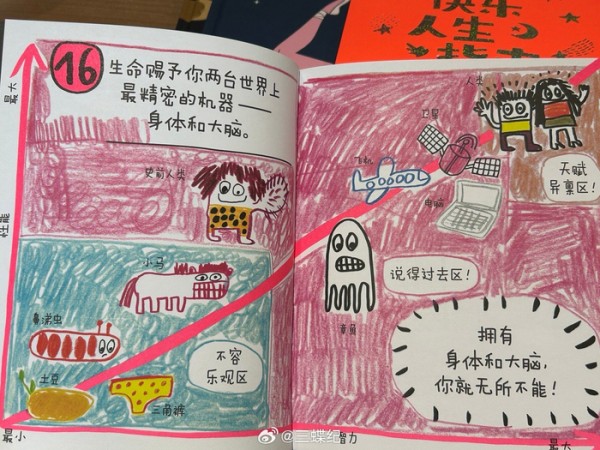 快乐
人生
指南
16
生命赐予你两台世界上
最精密的机器——
身体和大脑。
最大
性能
史前人类
小马
鼻涕虫
土豆
三角裤
不容
乐观区
最小
人类
卫星
飞机
电脑
天赋
异禀区！
说得过去区！
章鱼
拥有
身体和大脑，
你就无所不能！
智力
最大
@三蝶纪